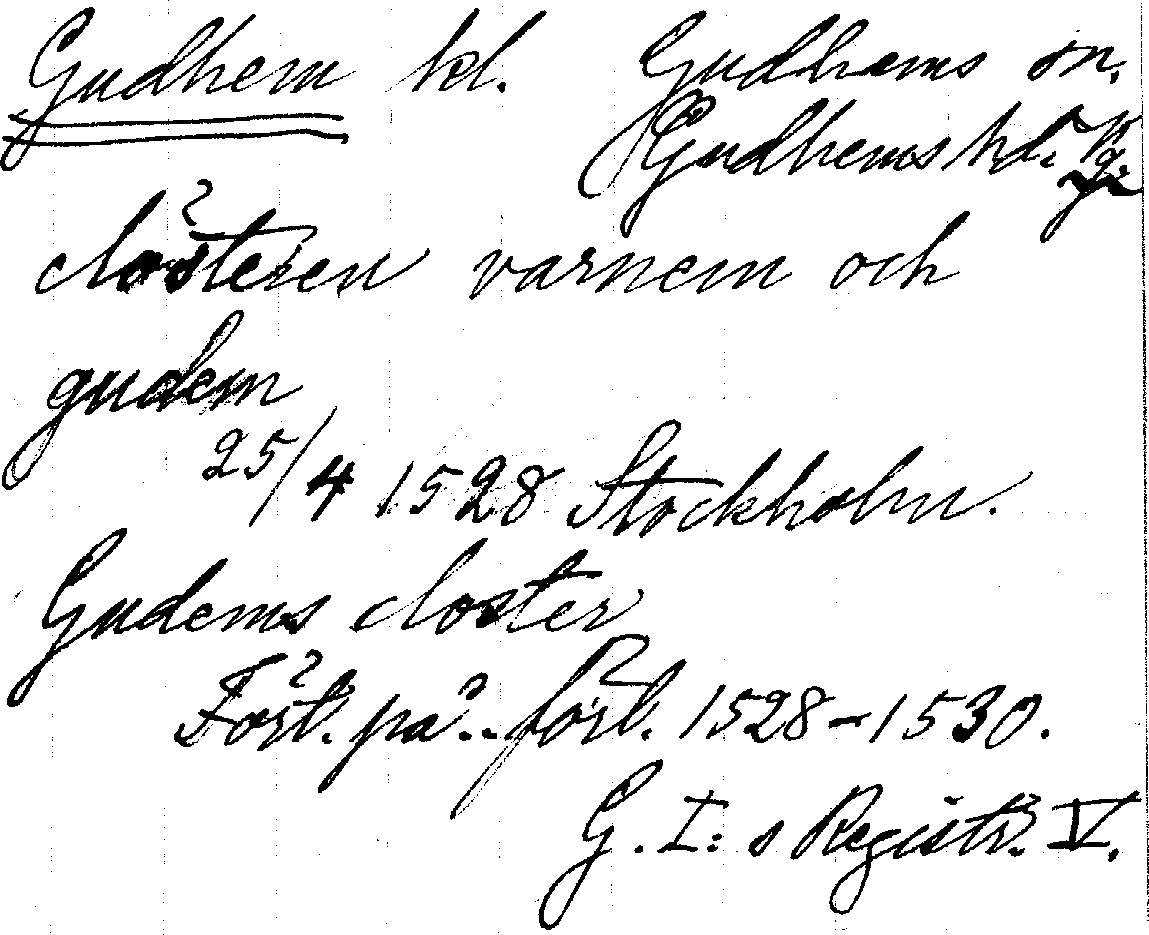 Gudhem kl. Gudhems sn.
Gudhems hd. Vg.
clösteren varnem och
gudem
25/4 1528 Stockholm.
Gudems closter
Fört. på .. förl. 1528-1530.
G. I: s Registr. V.